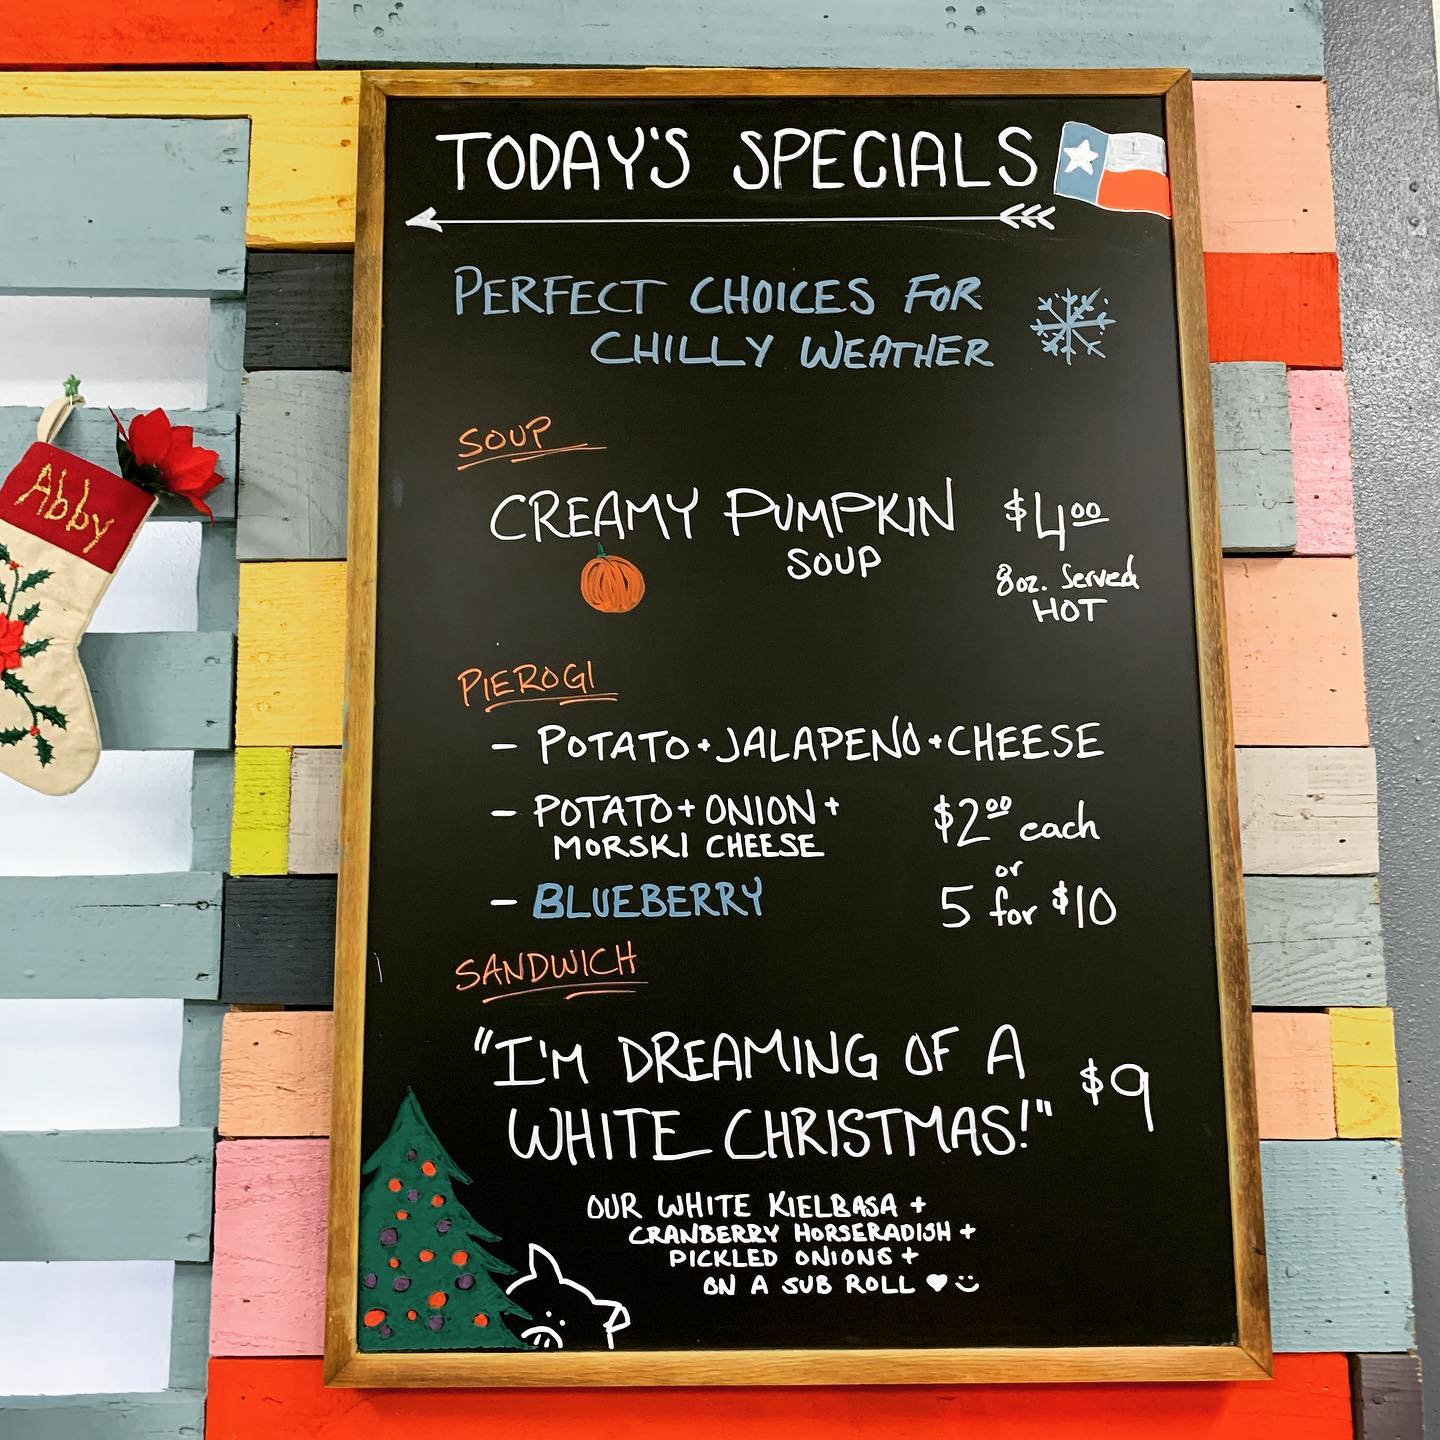 TODAY'S SPECIALS
PERFECT CHOICES FOR
CHILLY WEATHER
SOUP
CREAMY PUMPKIN $4.00
SOUP
8oz. Served
HOT
PIEROGI
- POTATO + JALAPEÑO + CHEESE
- POTATO + ONION +
MORSKI CHEESE
$2.00 each
or
- BLUEBERRY 5 for $10
SANDWICH
"I'M DREAMING OF A
WHITE CHRISTMAS!" $9
OUR WHITE KIELBASA +
CRANBERRY HORSERADISH +
PICKLED ONIONS +
ON A SUB ROLL
Abby